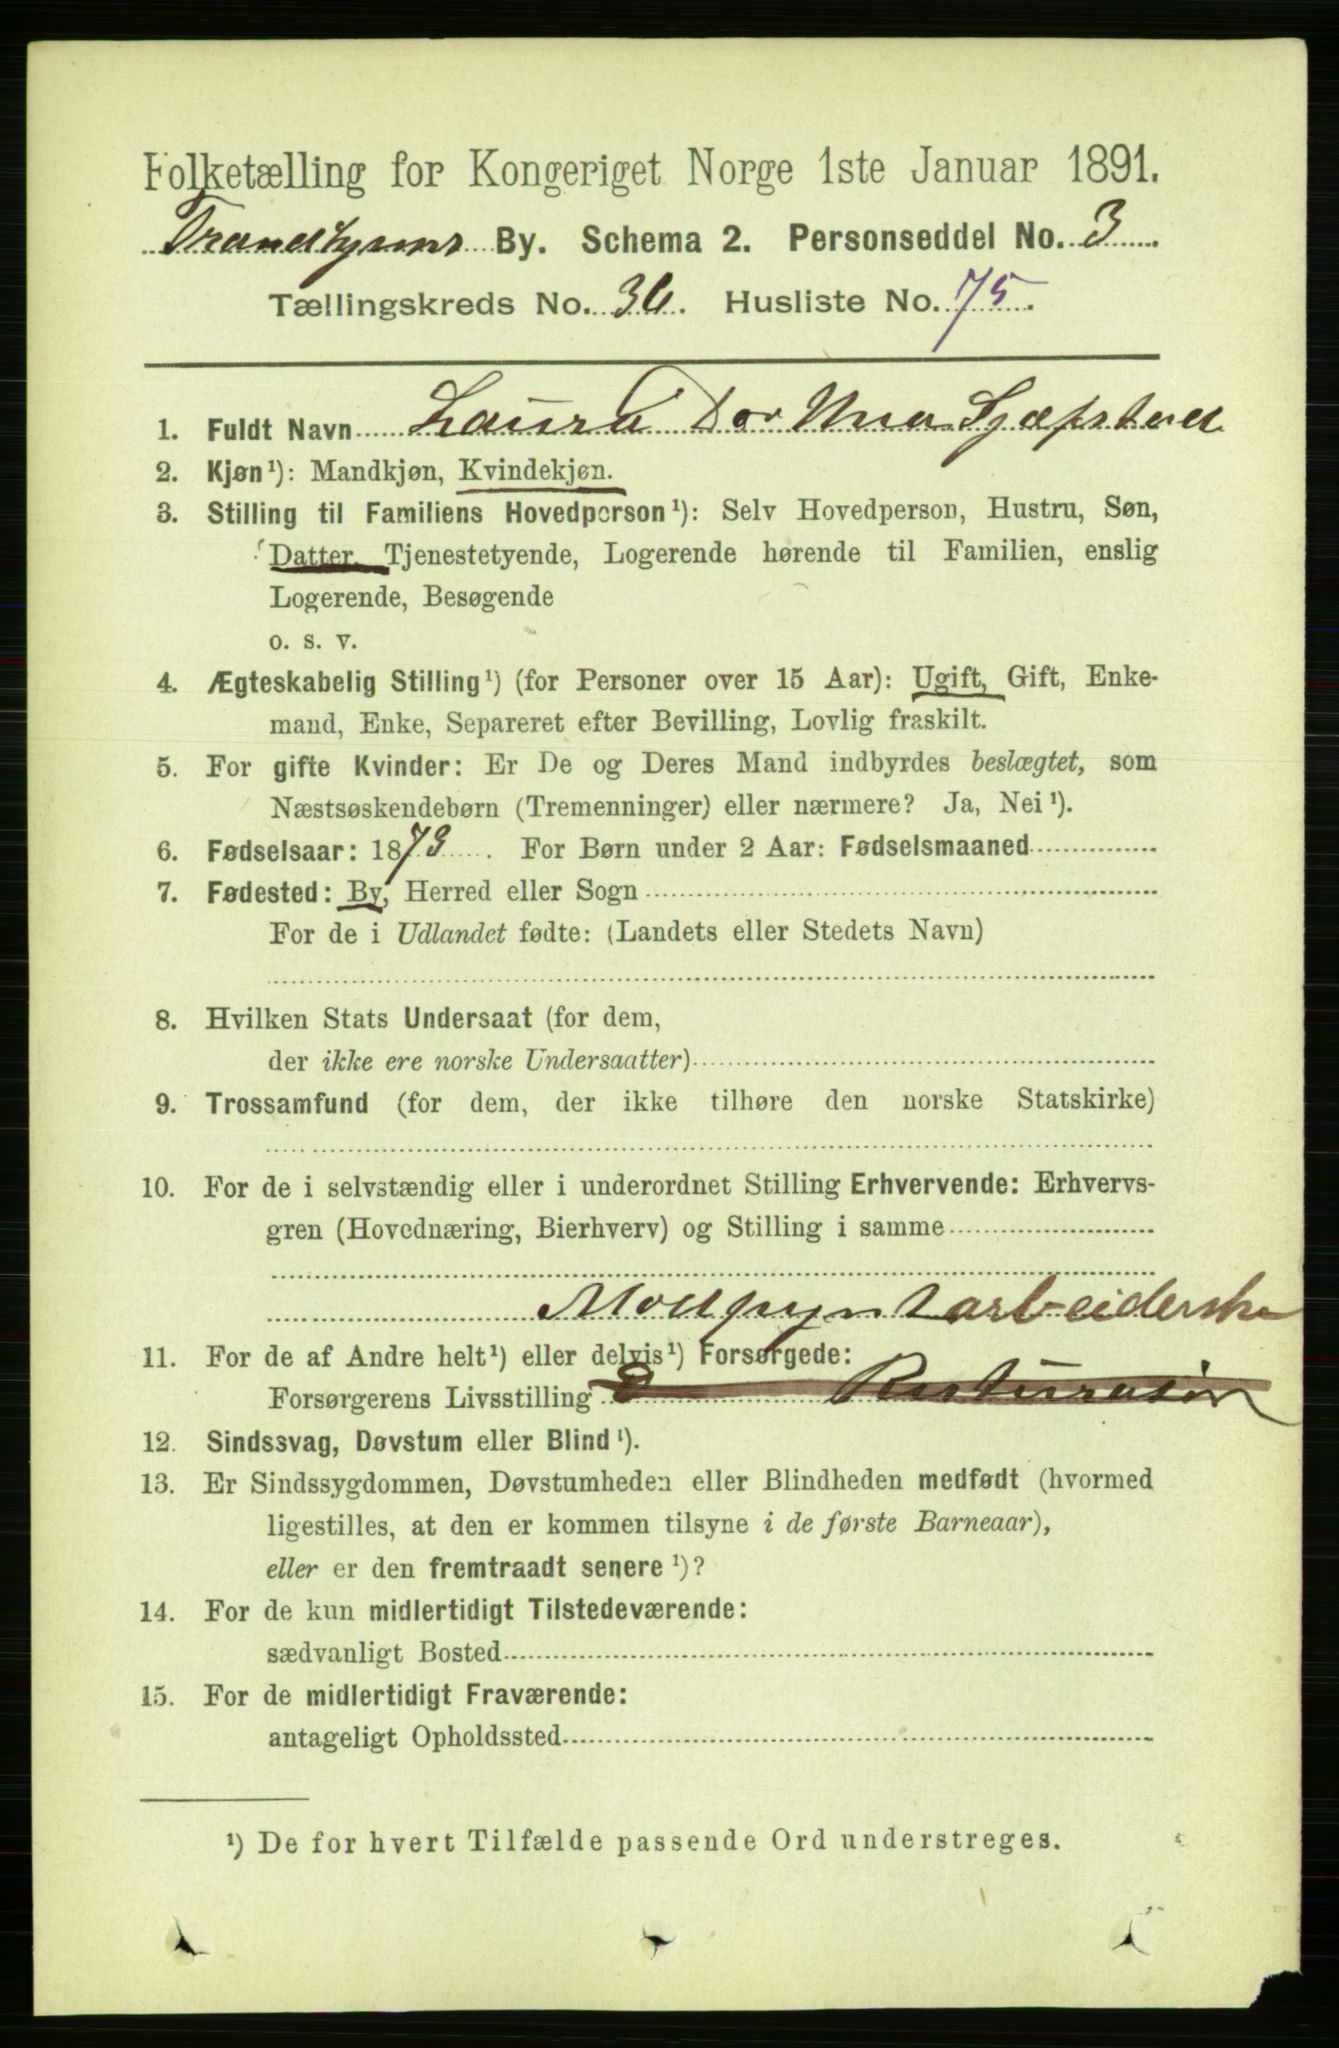 Folketælling for Kongeriget Norge 1ste Januar 1891.
Trondhjems By. Schema 2. Personseddel No. 3
Tællingskreds No. 36. Husliste No. 75.
1. Fuldt Navn Laura Dorthea
2. Kjøn¹): Mandkjøn, Kvindekjøn.
3. Stilling til Familiens Hovedperson¹): Selv Hovedperson, Hustru, Søn,
Datter, Tjenestetyende, Logerende hørende til Familien, enslig
Logerende, Besøgende
o. s. v.
4. Ægteskabelig Stilling¹) (for Personer over 15 Aar): Ugift, Gift, Enke-
mand, Enke, Separeret efter Bevilling, Lovlig fraskilt.
5. For gifte Kvinder: Er De og Deres Mand indbyrdes beslægtet, som
Næstsøskendebørn (Tremenninger) eller nærmere? Ja, Nei¹).
6. Fødselsaar: 1873. For Børn under 2 Aar: Fødselsmaaned
7. Fødested: By, Herred eller Sogn
For de i Udlandet fødte: (Landets eller Stedets Navn)
8. Hvilken Stats Undersaat (for dem,
der ikke ere norske Undersaatter)
9. Trossamfund (for dem, der ikke tilhøre den norske Statskirke)
10. For de i selvstændig eller i underordnet Stilling Erhvervende: Erhvervs-
gren (Hovednæring, Bierhverv) og Stilling i samme
Modpyntarbeiderske
11. For de af Andre helt¹) eller delvis¹) Forsørgede:
Forsørgerens Livsstilling
12. Sindssvag, Døvstum eller Blind¹).
13. Er Sindssygdommen, Døvstumheden eller Blindheden medfødt (hvormed
ligestilles, at den er kommen tilsyne i de første Barneaar),
eller er den fremtraadt senere¹)?
14. For de kun midlertidigt Tilstedeværende:
sædvanligt Bosted
15. For de midlertidigt Fraværende:
antageligt Opholdssted
¹) De for hvert Tilfælde passende Ord understreges.